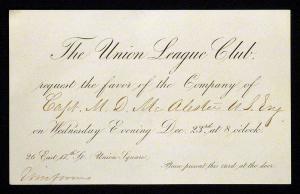 The Union League Club.
request the favor of the Company of
Capt. M. D. McAlester U.S. Eng
on Wednesday Evening Dec. 23rd at 8 o'clock.
26 East 17th St. Union Square.
Please present this card, at the door.